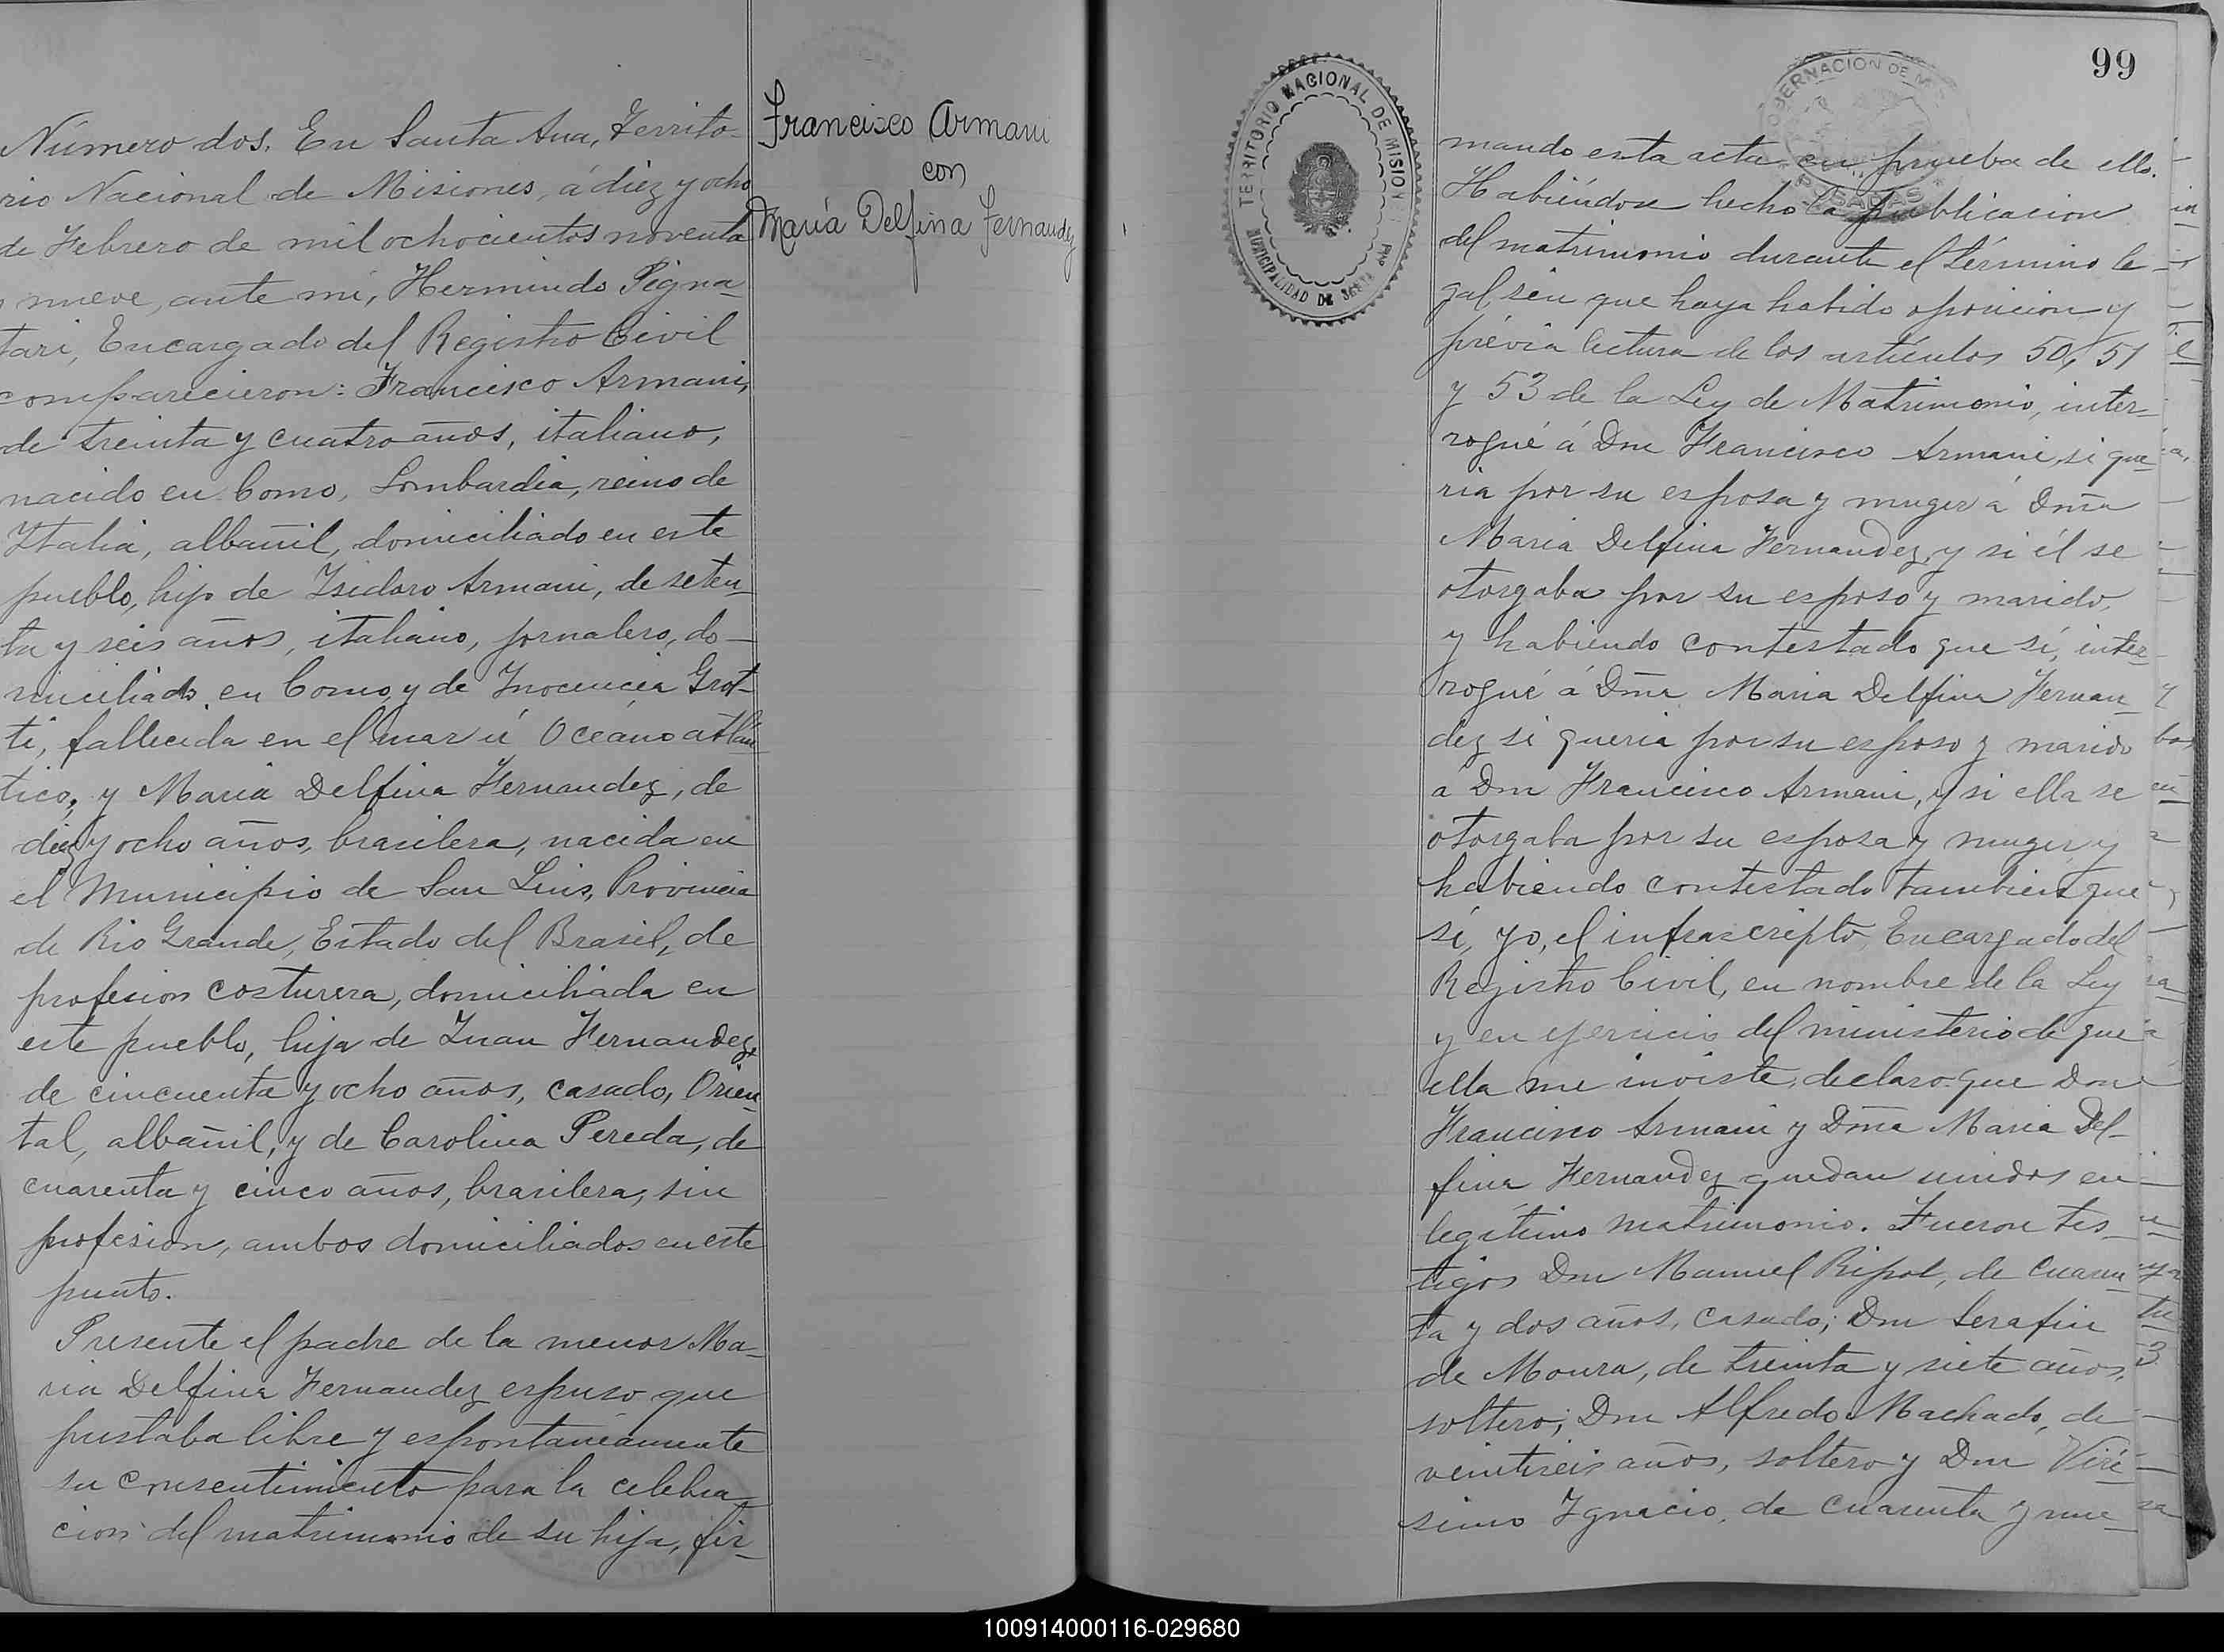 Número dos. En Santa Ana, Territo-
rio Nacional de Misiones, á diez y ocho
de Febrero de mil ochocientos noventa
nueve, ante mi, Hermindo Pigna-
tari, Encargado del Registro Civil
comparecieron: Francisco Armani,
de treinta y cuatro años, italiano,
nacido en Como, Lombardia, reino de
Italia, albañil, domiciliado en este
pueblo, hijo de Isidoro Armani, de seten-
ta y seis años, italiano, jornalero, do-
miciliado en Como, y de Inocencia Grot-
ti, fallecida en el mar ú Océano atlán
tico, y Maria Delfina Fernandez, de
diez y ocho años, brasilera, nacida en
el Municipio de San Luis, Provincia
de Rio Grande, Estado del Brasil, de
profesion costurera, domiciliada en
este pueblo, hija de Juan Fernandez,
de cincuenta y ocho años, casado, Orien-
tal, albañil, y de Carolina Pereda, de
cuarenta y cinco años, brasilera, sin
profesion, ambos domiciliados en este
punto.
Presente el padre de la menor Ma-
ria Delfina Fernandez espuso que
prestaba libre y espontaneamente
su consentimiento para la celebra-
cion del matrimonio de su hija, fir-
Francisco Armani
con
María Delfina Fernandez
TERRITORIO NACIONAL DE MISION
MUNICIPALIDAD DE
99
GOBERNACION DE
POSADAS
mando esta acta en prueba de ello.
Habiéndose hecho la publicacion
del matrimonio durante el término le-
gal, sin que haya habido oposicion y
prévia lectura de los artículos 50, 51
y 53 de la Ley de Matrimonio, inter-
rogué á Don Francisco Armani, si que-
ria por su esposa y muger á Doña
Maria Delfina Fernandez, y si él se
otorgaba por su esposo y marido,
y habiendo contestado que sí, inter-
rogué á Doña Maria Delfina Fernan-
dez si queria por su esposo y marido
á Don Francisco Armani, y si ella se
otorgaba por su esposa y muger, y
habiendo contestado tambien que
sí, yo, el infrascripto, Encargado del
Registro Civil, en nombre de la Ley
y en ejercicio del ministerio de que
ella me inviste, declaro que Don
Francisco Armani y Doña Maria Del-
fina Fernandez quedan unidos en
legítimo matrimonio. Fueron tes-
tigos Don Manuel Ripol, de cuaren-
ta y dos años, casado; Don Serafin
de Moura, de treinta y siete años,
soltero; Don Alfredo Machado, de
veintiseis años, soltero y Don Virí-
simo Ignacio, de cuarenta y nue-
100914000116-029680